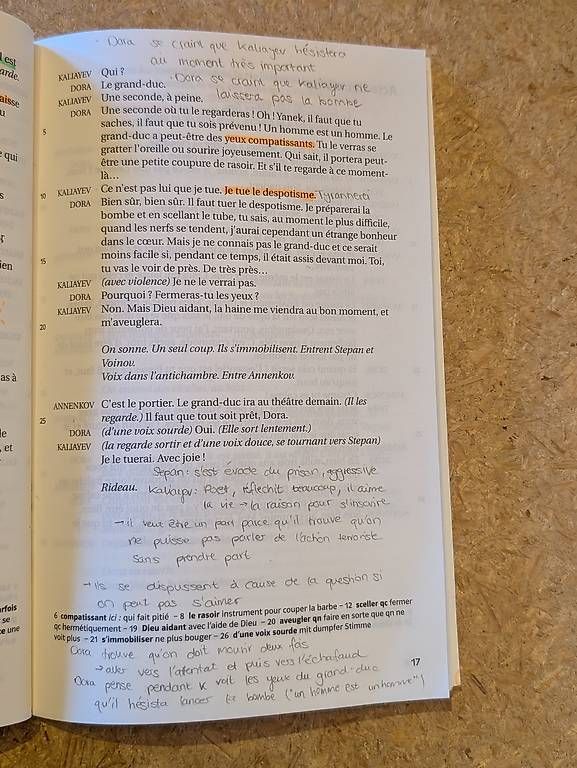 · Dora se craint que Kaliayev hésistera
au moment très important
KALIAYEV Qui ? · Dora se craint que Kaliayev ne
DORA Le grand-duc. laissera pas la bombe
KALIAYEV Une seconde, à peine.
DORA Une seconde où tu le regarderas ! Oh ! Yanek, il faut que tu
5 saches, il faut que tu sois prévenu ! Un homme est un homme. Le
grand-duc a peut-être des yeux compatissants. Tu le verras se
gratter l'oreille ou sourire joyeusement. Qui sait, il portera peut-
être une petite coupure de rasoir. Et s'il te regarde à ce moment-
là…
10 KALIAYEV Ce n'est pas lui que je tue. Je tue le despotisme.
DORA Bien sûr, bien sûr. Il faut tuer le despotisme. Je préparerai la
bombe et en scellant le tube, tu sais, au moment le plus difficile,
quand les nerfs se tendent, j'aurai cependant un étrange bonheur
dans le cœur. Mais je ne connais pas le grand-duc et ce serait
15 moins facile si, pendant ce temps, il était assis devant moi. Toi,
tu vas le voir de près. De très près…
KALIAYEV (avec violence) Je ne le verrai pas.
DORA Pourquoi ? Fermeras-tu les yeux ?
KALIAYEV Non. Mais Dieu aidant, la haine me viendra au bon moment, et
20 m'aveuglera.
On sonne. Un seul coup. Ils s'immobilisent. Entrent Stepan et
Voinov.
Voix dans l'antichambre. Entre Annenkov.
ANNENKOV C'est le portier. Le grand-duc ira au théâtre demain. (Il les
25 regarde.) Il faut que tout soit prêt, Dora.
DORA (d'une voix sourde) Oui. (Elle sort lentement.)
KALIAYEV (la regarde sortir et d'une voix douce, se tournant vers Stepan)
Je le tuerai. Avec joie !
Sepan: s'est évadé du prison, aggressive
Rideau. Kaliayev: Poet, réfléchit beaucoup, il aime
la vie → la raison pour s'inscrire
→ il veut être un part parce qu'il trouve qu'on
ne puisse pas parler de l'action terroriste
sans prendre part
→ ils se dispussent à cause de la question si
on peut pas s'aimer
6 compatissant ici : qui fait pitié – 8 le rasoir instrument pour couper la barbe – 12 sceller qc fermer
qc hermétiquement – 19 Dieu aidant avec l'aide de Dieu – 20 aveugler qn faire en sorte que qn ne
voit plus – 21 s'immobiliser ne plus bouger – 26 d'une voix sourde mit dumpfer Stimme
Dora trouve qu'on doit mourir deux fois
→ aller vers l'attentat et puis vers l'échafaud
17
Dora pense pendant K voit les yeux du grand-duc
qu'il hésista lancer la bombe ("un homme est un homme")